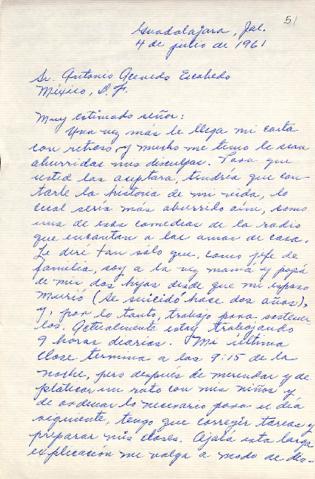 51
Guadalajara, Jal.
4 de julio de 1961
Sr. Antonio Acevedo Escobedo
México, D.F.
Muy estimado señor:
Una vez más le llega mi carta
con retraso y mucho me temo le sean
aburridas mis disculpas. Para que
usted las aceptara, tendría que con-
tarle la historia de mi vida, lo
cual sería más aburrido aún, como
una de esas comedias de la radio
que encantan a las amas de casa.
Le diré tan sólo que, como jefe de
familia, soy a la vez mamá y papá
de mis dos hijas desde que mi esposo
murió (se suicidó hace dos años),
y, por lo tanto, trabajo para sostener
los. Actualmente estoy trabajando
9 horas diarias. Mi última
clase termina a las 9:15 de la
noche, pero después de merendar y de
platicar un rato con mis niños y
de ordenar lo necesario para el día
siguiente, tengo que corregir tareas y
preparar mis clases. Ojalá esta larga
explicación me valga a modo de dis-